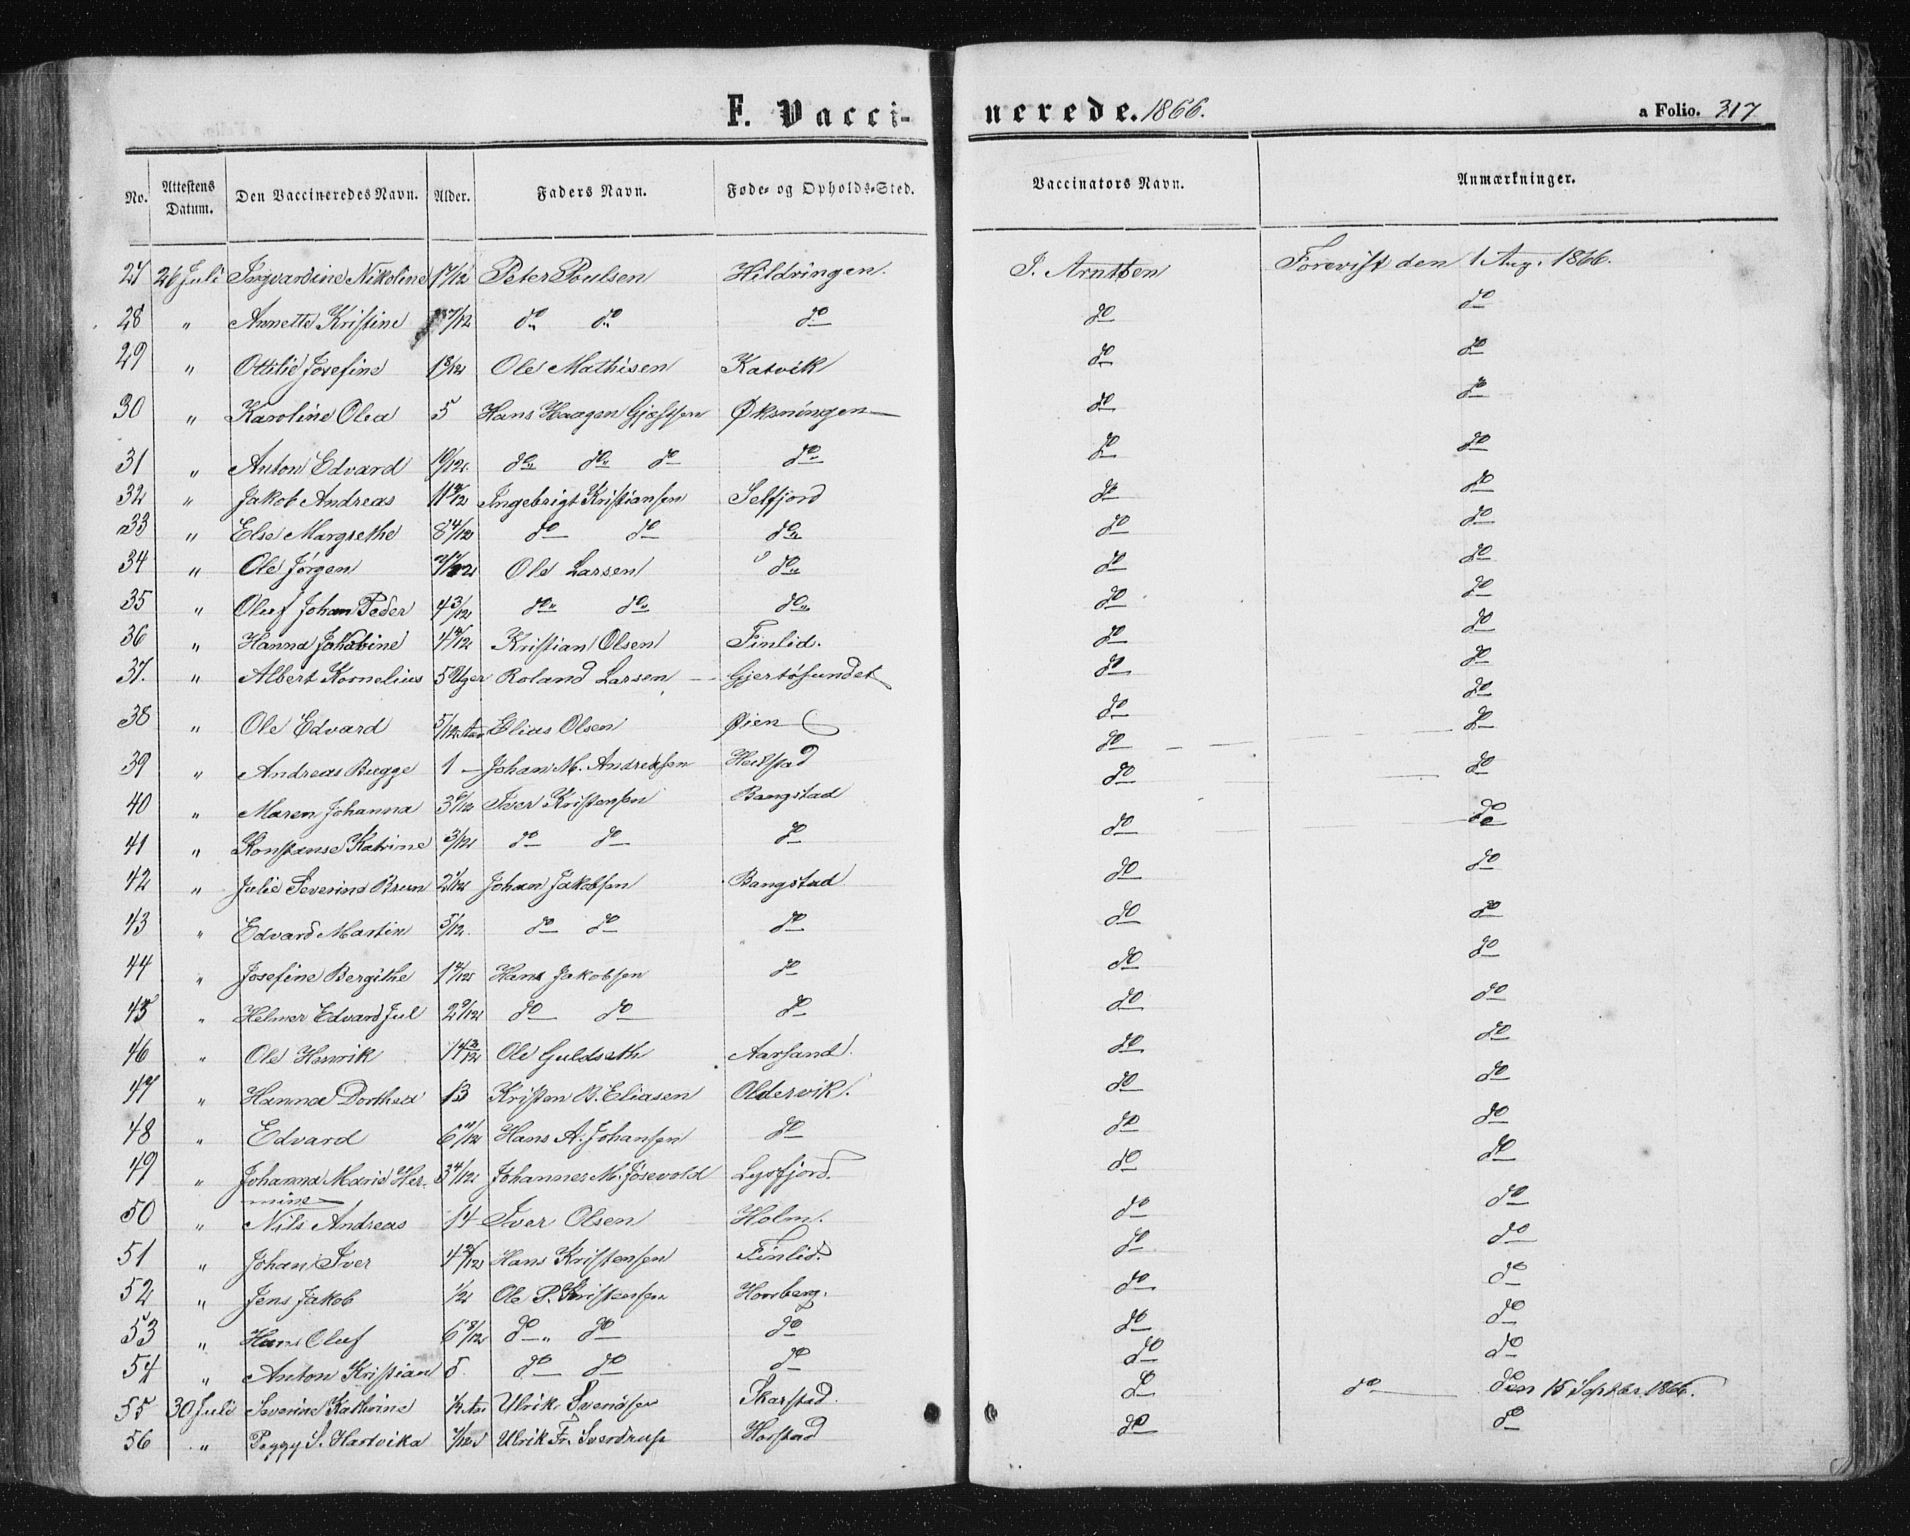 F. Vacci-nerede. 1866. a Folio. 317
No. Attestens Datum. Den Vaccineredes Navn. Alder. Faders Navn. Føde- og Opholds-Sted. Vaccinators Navn. Anmærkninger.
27 26 Juli Ingvardine Nikoline 1 7/12 Peter Poulsen Hildringen. I. Arntsen Forevist den 1 Aug. 1866.
28 " Annette Kristine 7/12 do do do do do
29 " Ottilie Josefine 1 8/12 Ole Mathisen Katvik do do
30 " Karoline Olea 5 Hans Haagen Øksningen do do
31 " Anton Edvard 10/12 do do do do do do
32 " Jakob Andreas Ingebrigt Kristiansen Selfjord do do
33 " Else Margrethe 8 4/12 do do do do do
34 " Ole Jørgen Ole Larsen do do do
35 " Oluf Johan Peder 4 3/12 do do do do do
36 " Hanna Jakobine Kristian Olsen Finlid. do do
37. " Albert Kornelius 5 Uger Roland Larsen Gjertøsundet do do
38 " Ole Edvard 5/12 Aar Elias Olsen Øien do do
39 " Andreas Bugge 1 Johan M. Andresen Heilstad do do
40 " Maren Johanna 3 6/12 Iver Kristensen Bangstad do do
41 " Konstanse Katrine 3/12 do do do do do
42 " Julie Severine Brun Johan Jakobsen Bangstad do do
43 " Edvard Martin 5/12 do do do do do
44 " Josefine Bergithe Hans Jakobsen do do do
45 " Helmer Edvard Jul 2 9/12 do do do do do
46 " Ole Henrik 14 3/12 Ole Guldseth Aarsand. do do
47 " Hanna Dorthea 13 Kristen B. Eliasen Oldervik. do do
48 " Edvard Hans A. Johansen do do do
49 " Johanna Marie Her- 3 4/12 Johannes M. Jøsevold Lysfjord. do do
mine
50 " Nils Andreas 14 Iver Olsen Holm. do do
51 " Johan Iver Hans Kristensen Finlid. do do
52 " Jens Jakob 1/2 Ole P. Kristensen Horsberg. do do
53 " Hans Oluf 6 8/12 do " do do do do
54 " Anton Kristian do do do do do
55 30 Juli Severine Kathrine 1/2 Aar Ulrik Svendsen Skarstad. do do den 15 Septber 1866.
56 " Peggy S. Hartvika Ulrik Fr. Sverdrup Horstad do do